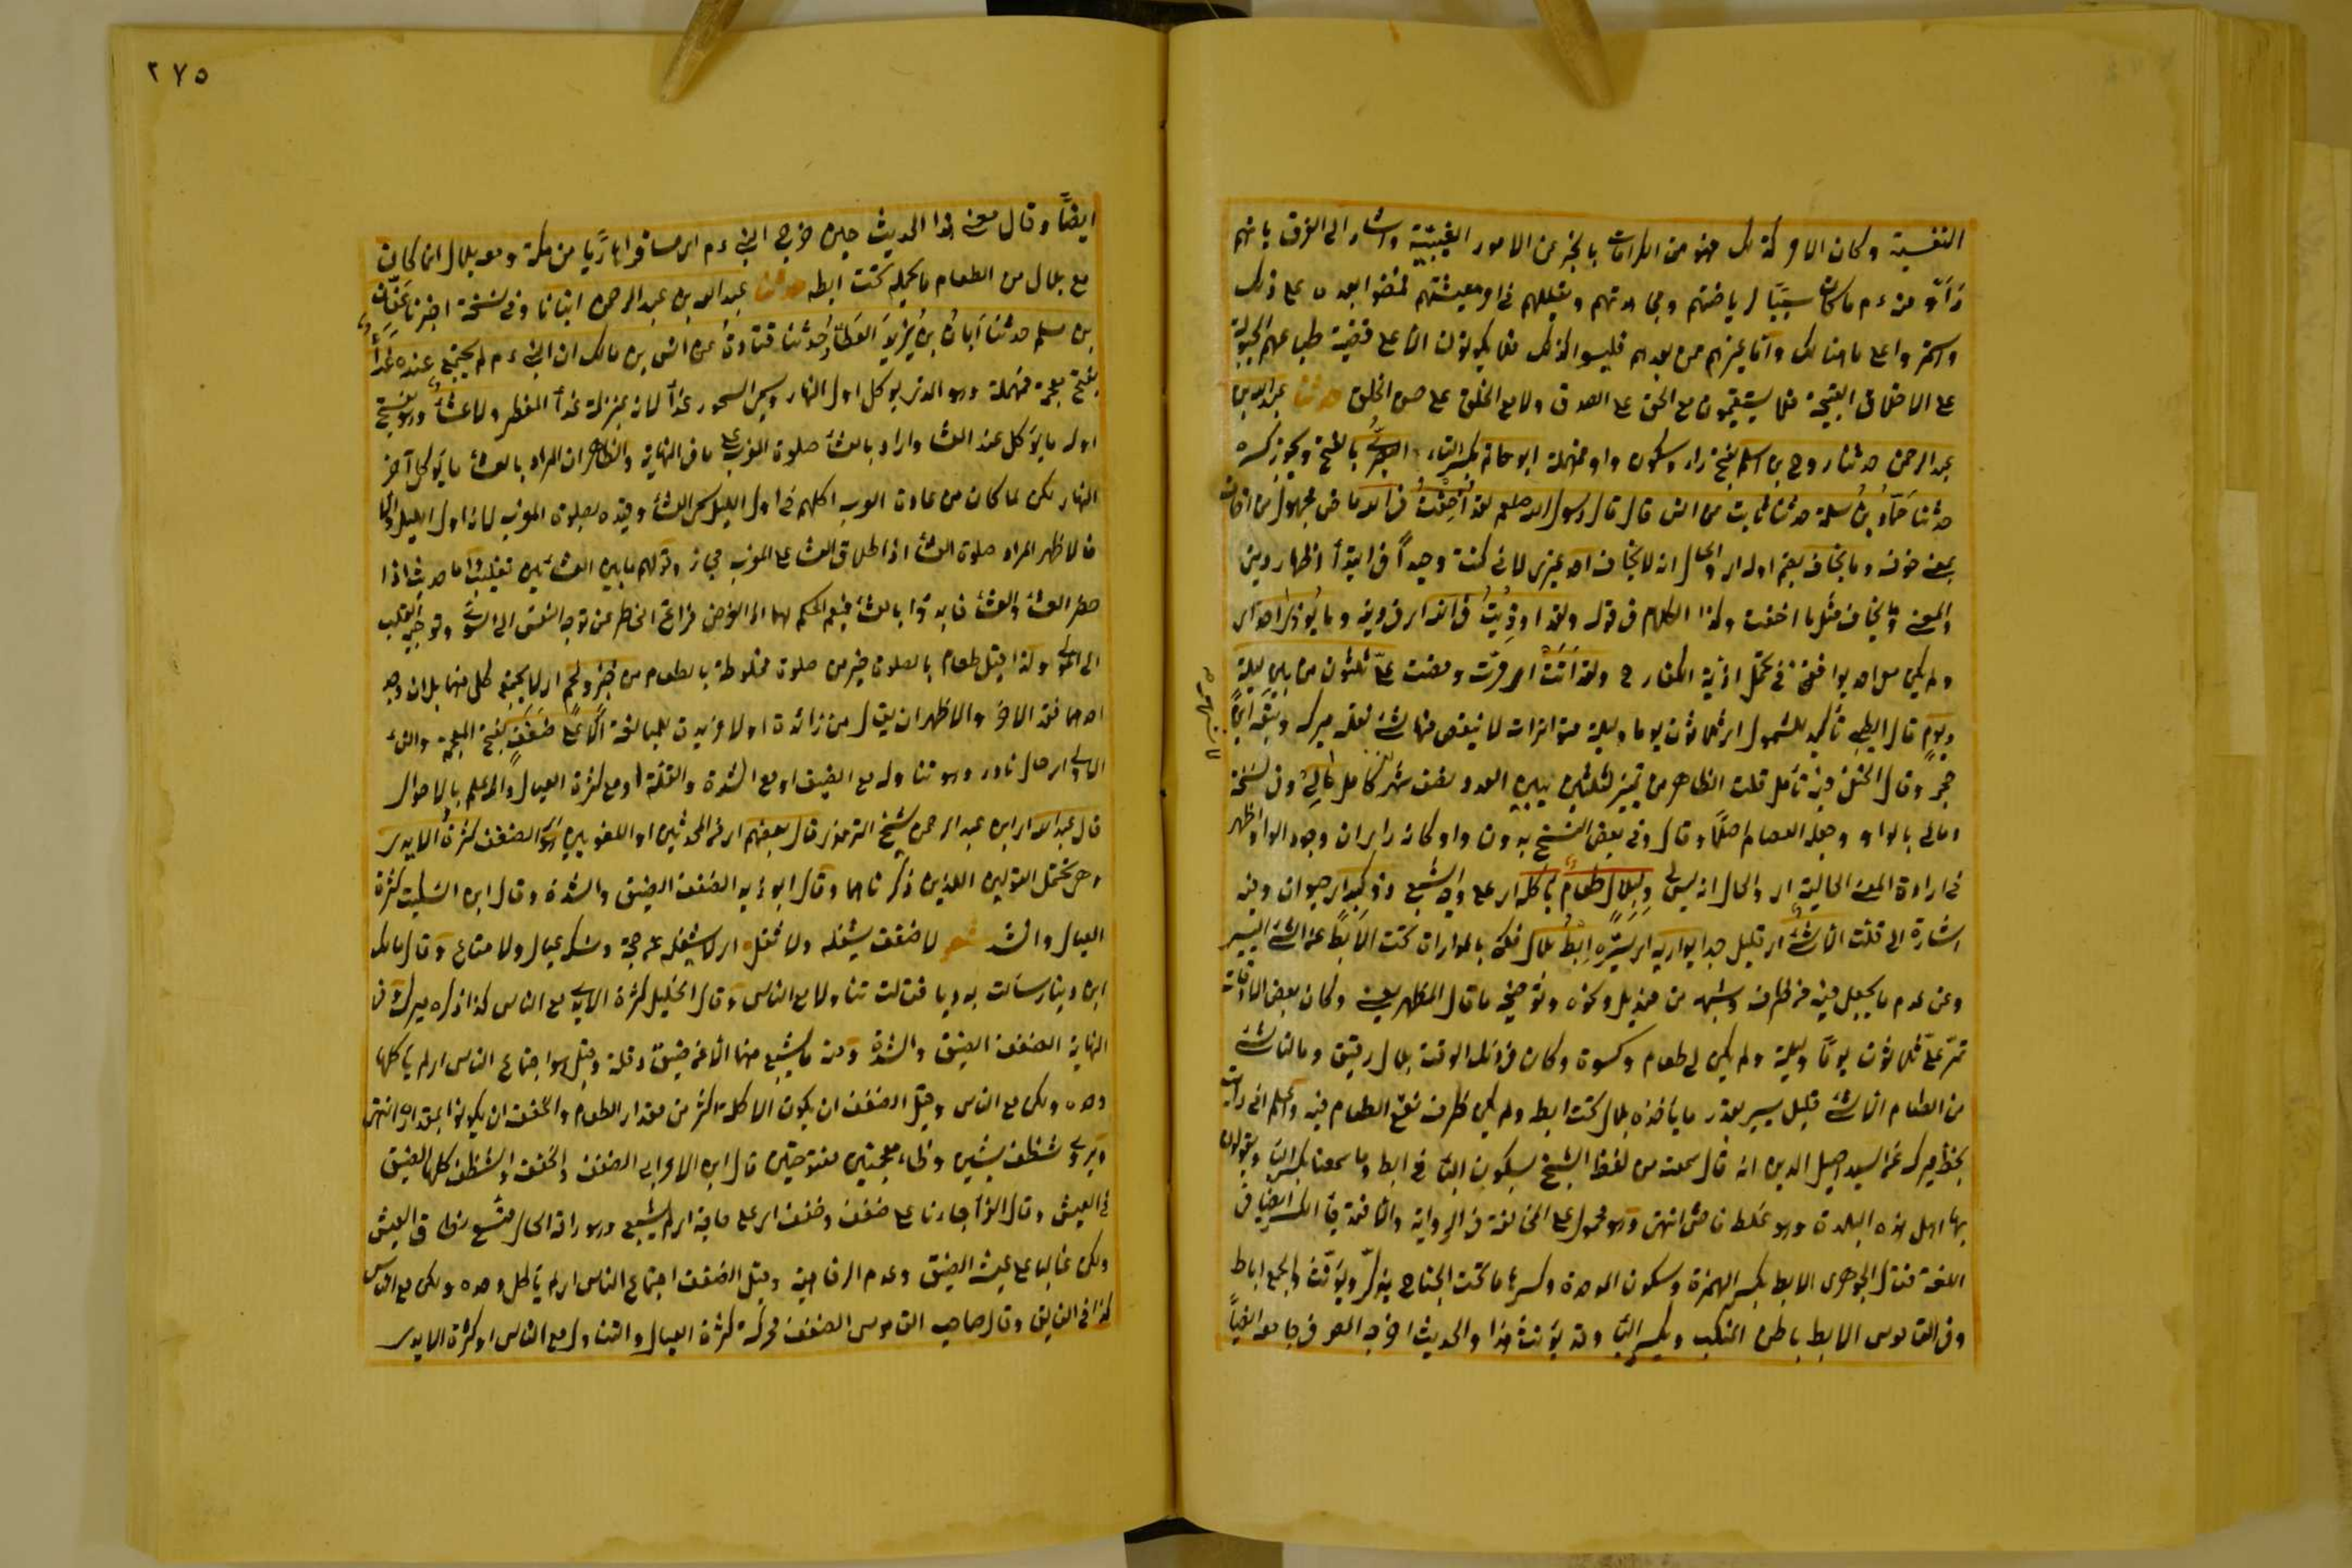 النفسية وكان الامر كذلك فهو من الكرامات بالخبر عن الامور الغيبية واشار الى الفرق بانهم
رأوا منه عم ما كان سببًا لرياضتهم ومجاهدتهم وتقللهم في امر معيشتهم فمضوا بعده على ذلك
واستمروا على ما هنالك واما غيرهم ممن بعدهم فليسوا كذلك فلا يكونون الا على قضية طباعهم المجبولة
على الاخلاق القبيحة فلا يستقيمون مع الحق على الصدق ولا مع الخلق على حسن الخلق حدثنا عبد الله بن
عبد الرحمن حدثنا روح بن اسلم بفتح راء وسكون واو فمهملة ابو حاتم بكسر التاء البصري بالفتح ويجوز كسره
حدثنا حماد بن سلمة حدثنا ثابت عن انس قال قال رسول الله صلعم لقد أُخِفْتُ في الله ماض مجهول من اخاف
بمعنى خوف وما يخاف بضم اوله اي والحال انه لا يخاف احد غيري لاني كنت وحيدًا في ابتداء اظهار ديني
والمعنى ما يخاف مثل ما اخفت وكذا الكلام في قوله ولقد اوذيتُ في الله اي في دينه وما يُوذى احد اي
ولم يكن احد يوافقني في تحمل اذية الكفار ح ولقد أتت اي مرّت ومضت عليّ ثلثون من بين ليلة
ويومٍ قال الطيبي تأكيد للشمول اي ثلاثون يوما وليلة متواترات لا ينقص منها شئ نقله ميرك وتبعه ابن
حجر وقال الحنفي فيه تأمل قلت الظاهر من تمييز لثلثين يبين العدد نصف شهر كامل مالي وفي نسخة
ومالي بالواو وجعله العصام اصلًا وقال وفي بعض النسخ بدون واو وكانه رأى ان وجود الواو اظهر
في ارادة المعنى الحالية اي والحال انه ليس لي ولبلال طعام يأكله اي على وجه الشبع ذو كبد اي حيوان وفيه
اشارة الى قلته الا شئ اي قليل جدا يواريه اي يستره إبْطُ بلال فكنى بالمواراة تحت الابط عن الشئ اليسير
وعن عدم ما يجعل فيه من ظرف وشبهه من منديل ونحوه وتوضيحه ما قال المظهر يعني وكان بعض الاوقات
تمر عليّ ثلاثون يومًا وليلة ولم يكن لي طعام وكسوة وكان في ذلك الوقت بلال رفيقي وما لنا شئ
من الطعام الا شئ قليل يسير بقدر ما يأخذه بلال تحت ابطه ولم يكن ظرف نضع الطعام فيه واعلم اني رأيت
بخط ميرك عن السيد اصيل الدين انه قال سمعته من لفظ الشيخ بسكون الباء في ابط وما سمعنا بكسر الباء ويقولون
بها اهل هذه البلدة وهو غلط فاحش انتهى وهو محمول على المخالفة في الرواية والا فقد جاء بكسر ايضا في
اللغة فقال الجوهري الابط بكسر الهمزة وسكون الموحدة وكسرها ما تحت الجناح يذكّر ويؤنّث والجمع اباط
وفي القاموس الابط باطن المنكب وبكسر الباء وقد يؤنث هذا والحديث اخرجه المص في جامعه ايضًا
٢٧٥
ايضًا وقال معنى هذا الحديث حين خرج النبي عم اي مسافرا هاربًا من مكة ومعه بلال انما كان
مع بلال من الطعام ما يحمله تحت ابطه حدثنا عبد الله بن عبد الرحمن انبأنا وفي نسخة اخبرنا عفّان
بن مسلم حدثنا أبان بن يزيد العطار حدثنا قتادة عن انس بن مالك ان النبي عم لم يجتمع عنده غداء
بفتح معجمة فمهملة وهو الذي يوكل اول النهار وسمي السحور غداء لانه بمنزلة غداء المفطر ولا عشاء وهو بفتح
اوله ما يؤكل عند العشا واراد بالعشاء صلوة المغرب على ما في النهاية والظاهر ان المراد بالعشاء ما يؤكل آخر
النهار لكن لما كان من عادة العرب اكلهم في اول الليل سمي العشاء وقيده بصلوة المغرب لانه اول الليل والا
فالاظهر المراد صلوة العشاء اذ اطلاق العشاء على المغرب مجاز وقولهم ما بين العشائين تغليب واما حديث اذا
حضر العشاء والعشاء فابدؤا بالعشاء فيعم الحكم لهما اذ الغرض فراغ الخاطر عن توجه النفس الى السوى وتوجه القلب
الى المولى ولذا قيل طعام بالصلوة خير من صلوة مخلوطة بالطعام من خبز ولحم اي لا يجتمع كل منهما بل ان وجد
احدهما فقد الآخر والاظهر ان يقال من زائدة او لا مزيدة للمبالغة الا على ضَفَفٍ بفتح المعجمة والفاء
الاولى اي حال نادر وهو تناوله مع الضيق او مع الشدة والقلة او مع كثرة العيال والله اعلم بالاحوال
قال عبد الله اي ابن عبد الرحمن شيخ الترمذي قال بعضهم اي من المحدثين او اللغويين هو اي الضفف كثرة الايدي
وهي تحتمل القولين اللذين ذكرناهما وقال ابو زيد الضفف الضيق والشدة وقال ابن السكيت كثرة
العيال وانشد شعر لا ضفف يشغله ولا ثقل اي لا يشغله عن حجه ونسكه عيال ولا متاع وقال مالك
ابن دينار سألت بدويا فقالت تناولا مع الناس وقال الخليل كثرة الايدي مع الناس كذا ذكره ميرك وفي
النهاية الضفف الضيق والشدة ومنه ما يشبع منهما الا عن ضيق وقلة وقيل هو اجتماع الناس اي لم يأكلهما
وحده ولكن مع الناس وقيل الضفف ان يكون الاكلة اكثر من مقدار الطعام والحفف ان يكونوا بمقداره انتهى
ويروى شظف بشين وظاء معجمتين مفتوحتين قال ابن الاعرابي الضفف والحفف والشظف كلها الضيق
في العيش وقال الفراء جاءنا على ضفف وحفف اي على حاجة اي لم يشبع وهو رافه الحال متسع نطاق العيش
ولكن غالبا على عيشه الضيق وعدم الرفاهية وقيل الضفف اجتماع الناس اي لم يأكل وحده ولكن مع الناس
كذا في الفايق وقال صاحب القاموس الضفف محركة كثرة العيال والتناول مع الناس او كثرة الايدي